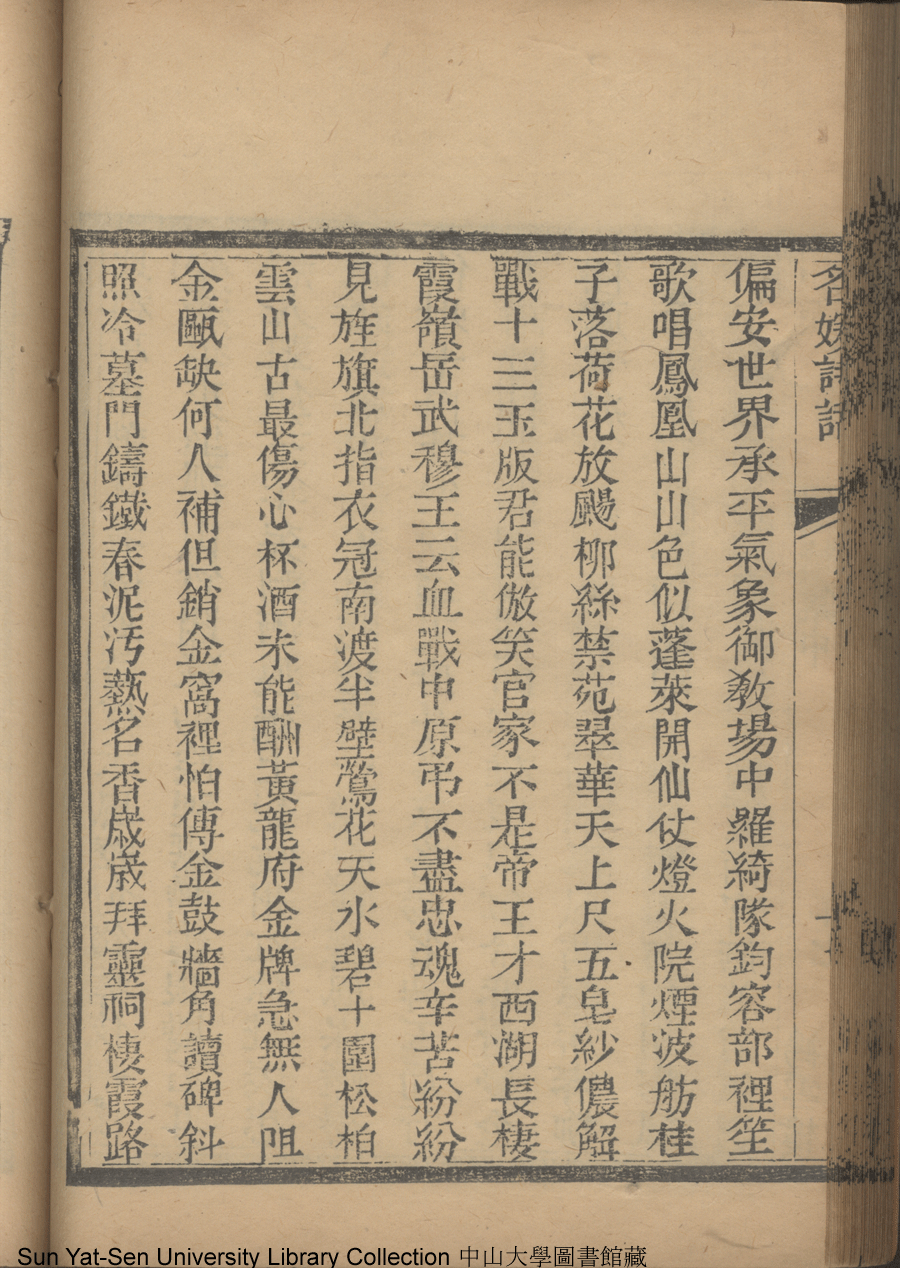 名媛詩話
偏安世界承平氣象御教場中羅綺隊鈞容部裡笙
歌唱鳳凰山山色似蓬萊開仙仗燈火院煙波舫桂
子落荷花放颺柳絲禁苑翠華天上尺五皂紗儂解
戰十三玉版君能倣笑官家不是帝王才西湖長棲
霞嶺岳武穆王云血戰中原弔不盡忠魂辛苦紛紛
見旌旗北指衣冠南渡半壁鶯花天水碧十圍松柏
雲山古最傷心杯酒未能酬黃龍府金牌急無人阻
金甌缺何人補但銷金窩裡怕傳金鼓牆角讀碑斜
照冷墓門鑄鐵春泥汚爇名香歲歲拜靈祠棲霞路
Sun Yat-Sen University Library Collection 中山大學圖書館藏